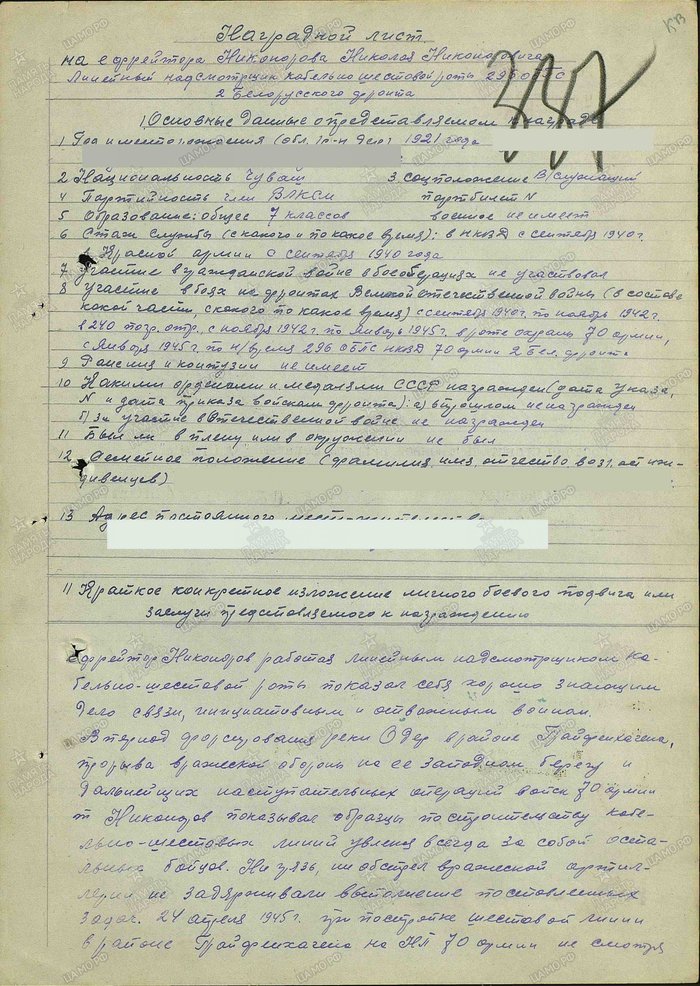 КВ
Наградной лист
на ефрейтора Никонорова Николая Никоноровича
Линейный надсмотрщик кабельно шестовой роты 296 ОБПС
2 Белорусского фронта
337
I Основные данные о представляемом к награде
1 Год и место рождения (обл. р-н дер.) 1921 года
2 Национальность чуваш 3 соц положение В/служащий
4 Партийность член ВЛКСМ партбилет N
5 Образование: общее 7 классов военное не имеет
6 Стаж службы (с какого и по какое время): в НКВД с сентября 1940г.
в Красной армии с сентября 1940 года
7 Участие в гражданской войне в боеоперациях не участвовал
8 Участие в боях на фронтах Великой отечественной войны (в составе
какой части, с какого по какое время) с сентября 1940г. по ноябрь 1942г.
в 240 погр. отр. с ноября 1942г. по январь 1945г. в роте охраны 70 армии,
с января 1945г. по н/время 296 ОБПС НКВД 70 армии 2 Бел. фронта
9 Ранения и контузии не имеет
10 Какими орденами и медалями СССР награжден (дата указа,
N и дата приказа войскам фронта): а) в прошлом не награжден
б) за участие в Отечественной войне не награжден
11 Был ли в плену или в окружении не был
12 Семейное положение (фамилия, имя, отчество, возраст ижи-
дивенцев)
13 Адрес постоянного
11 Краткое конкретное изложение личного боевого подвига или
заслуги представляемого к награждению
Ефрейтор Никоноров работая линейным надсмотрщиком ка-
бельно-шестовой роты показал себя хорошо знающим
дело связи, инициативным и отважным воином.
В период форсирования реки Одер в районе Грайфенхагена,
прорыва вражеской обороны на ее западном берегу и
дальнейших наступательных операций войск 70 армии
т Никоноров показывал образцы по строительству кабе-
льно-шестовых линий увлекая всегда за собой оста-
льных бойцов. Ни грязь, ни обстрел вражеской артил-
лерии не задерживали выполнение поставленных
задач. 24 апреля 1945г. при постройке шестовой линии
в районе Грайфенхагена на НП 70 армии не смотря